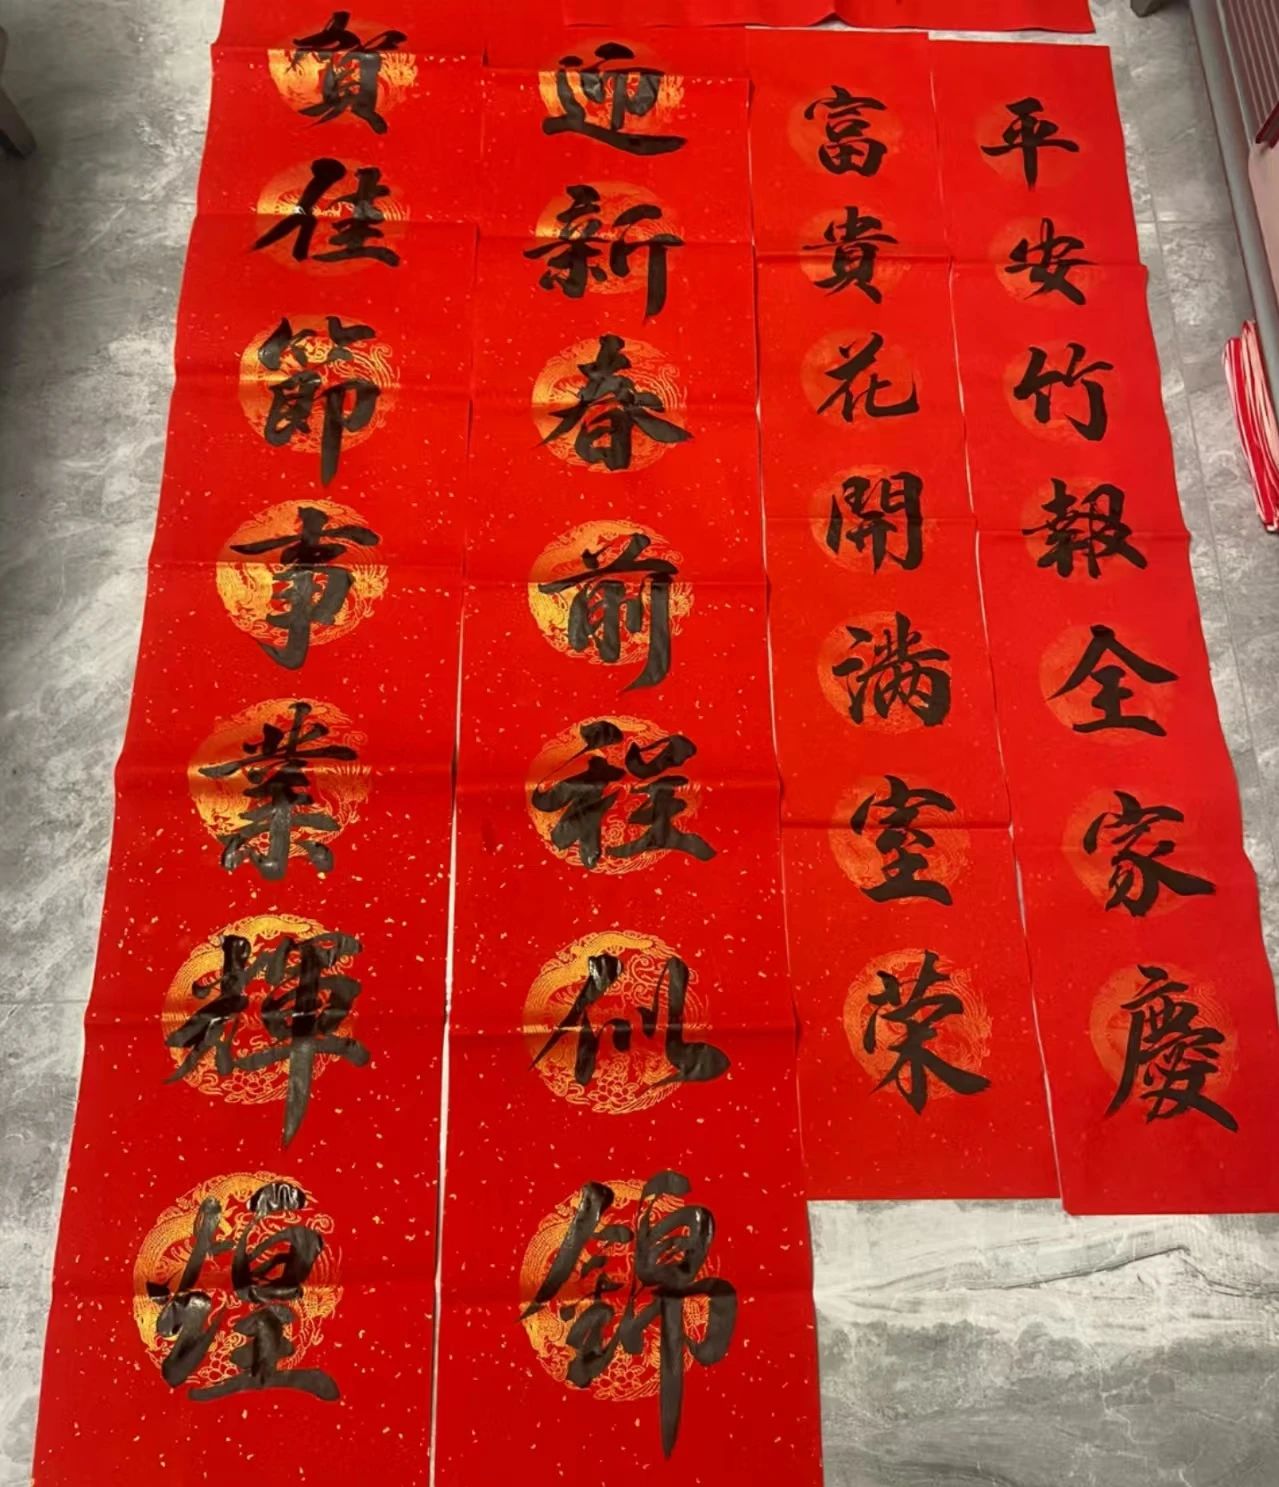 平安竹報全家慶
富貴花開满室荣
迎新春前程似錦
賀佳節事業輝煌